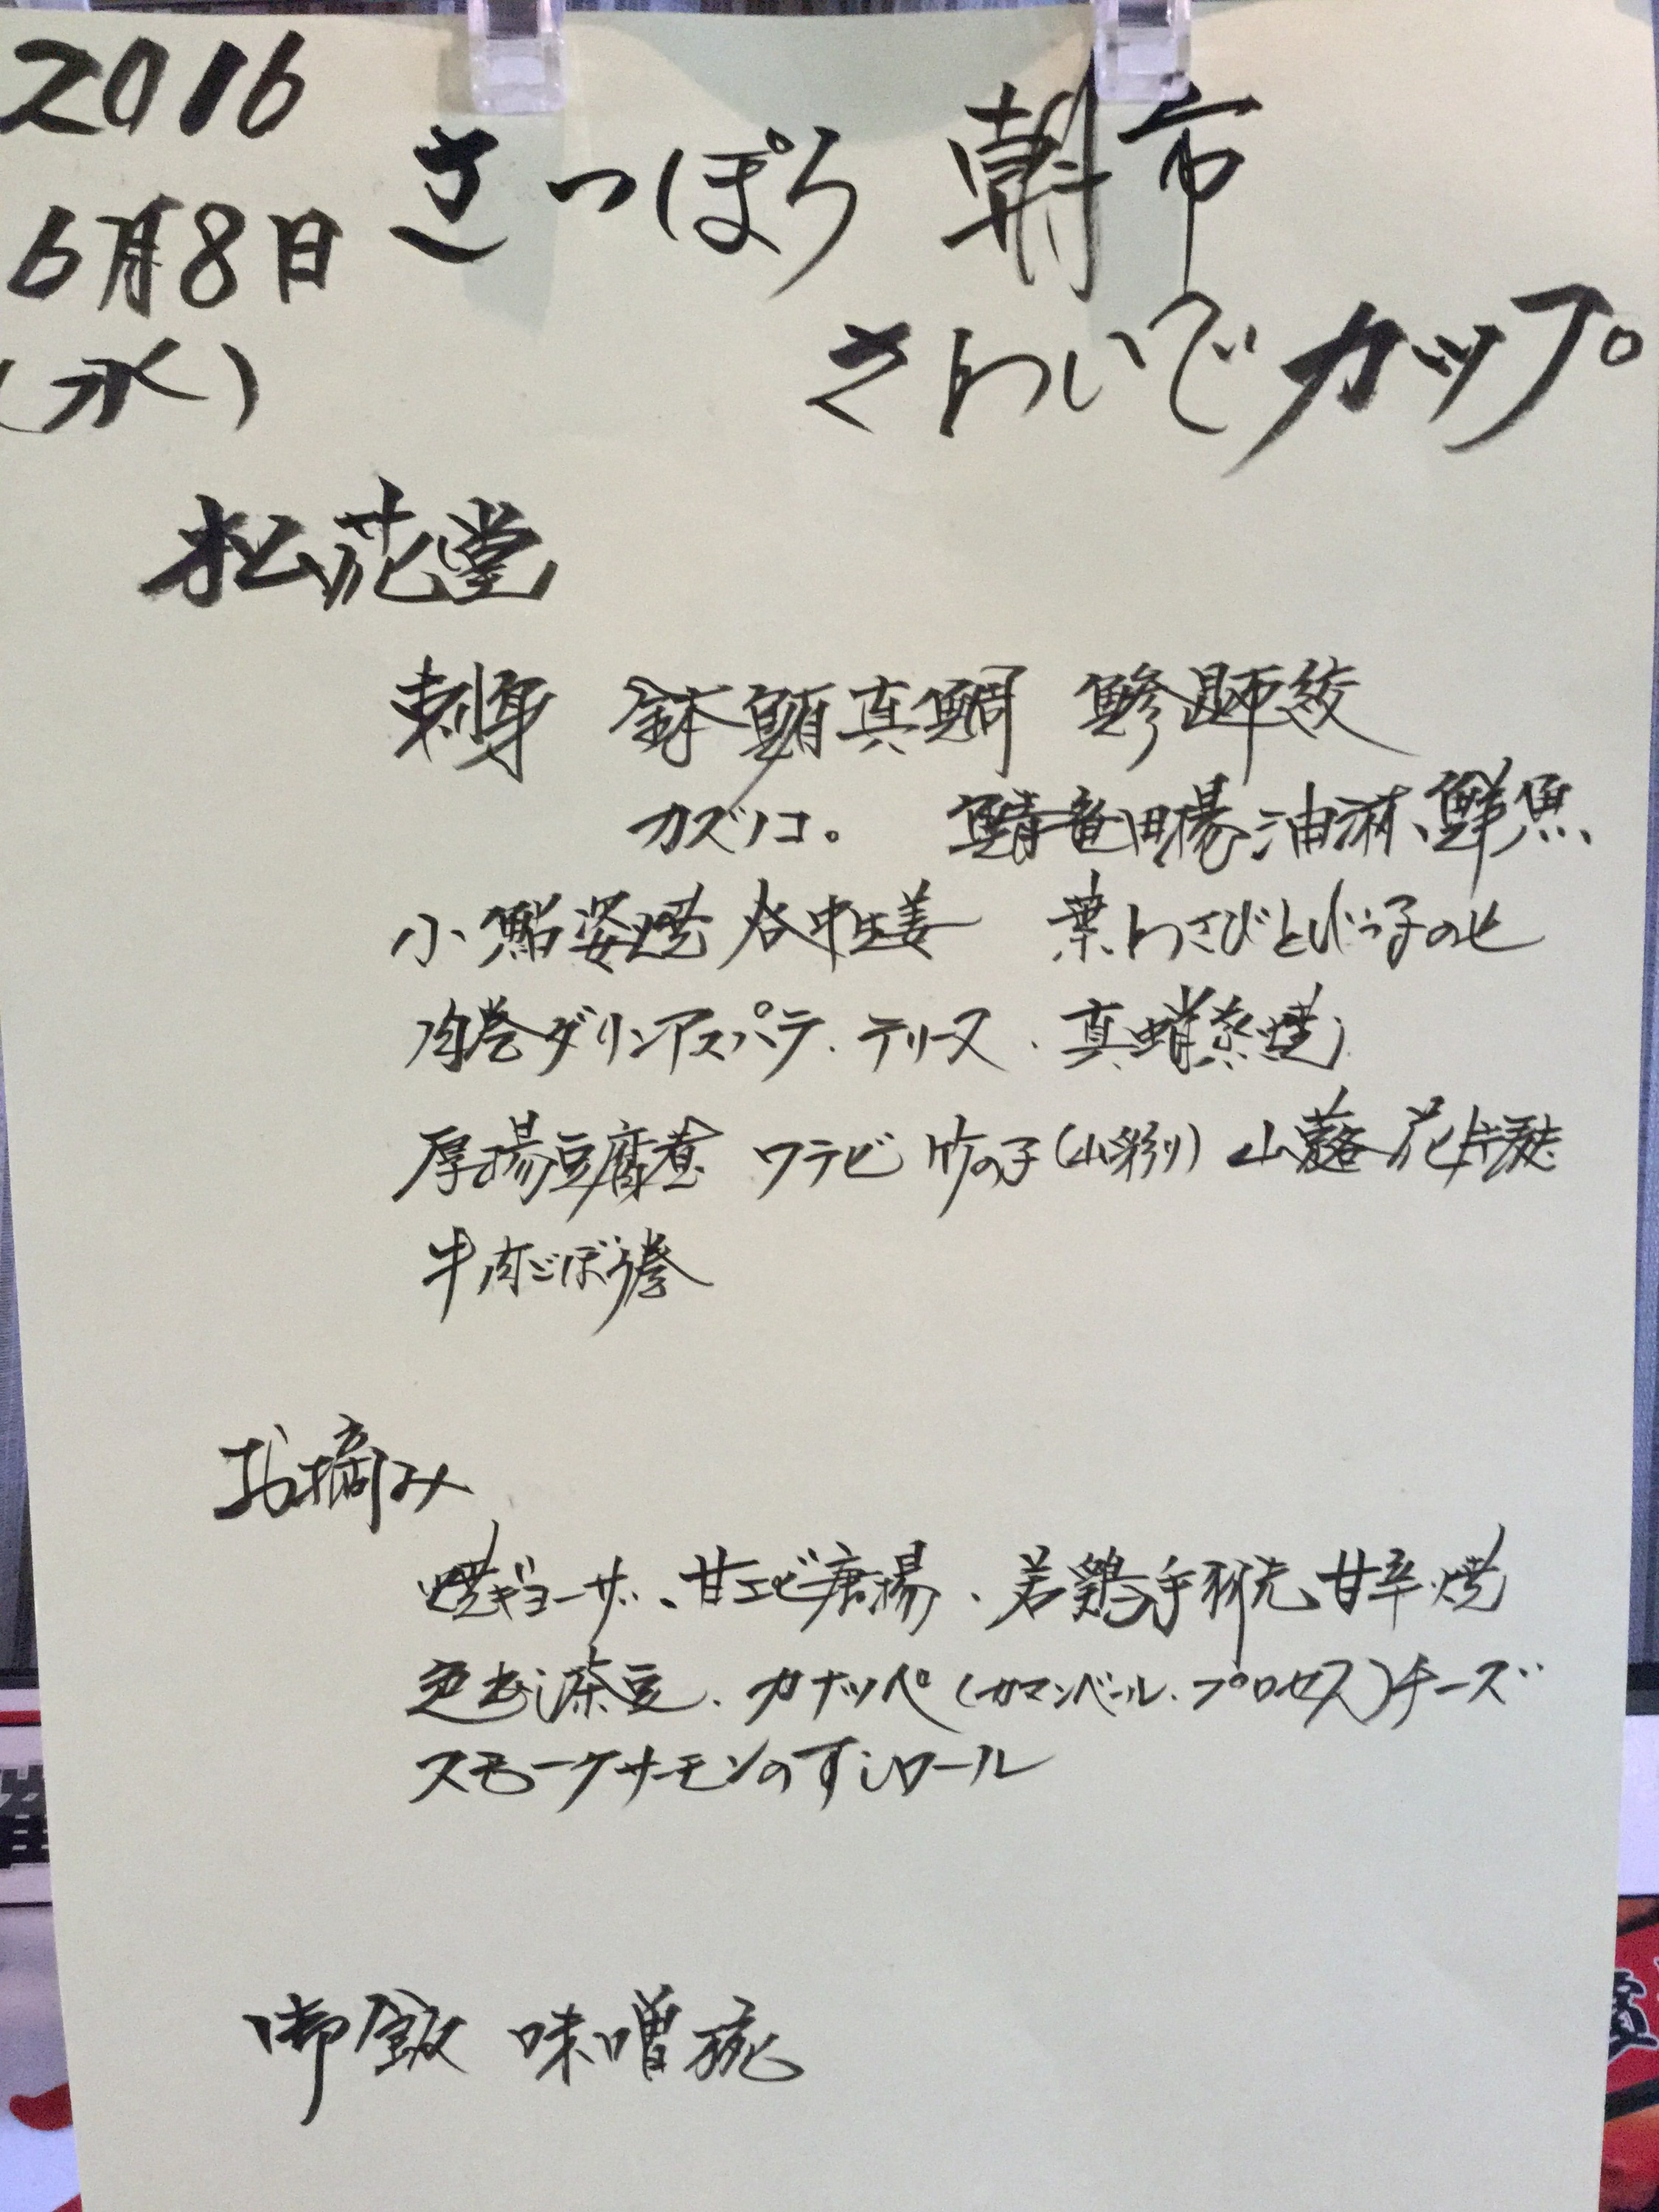 2016
6月8日
(水)
さっぽろ朝市
さわいでカップ
松花堂
刺身 鉢鮪 真鯛 鰺 昆布〆
カズノコ。 鯖竜田揚 油淋鮮魚、
小鮎姿焼 谷中生姜 葉わさびとし
肉巻グリンアスパラ・テリーヌ・真蛸蒸焼
厚揚豆腐煮 ワラビ 竹の子(山菜) 山蕗 花片
牛肉ごぼう巻
お摘み
焼ギョーザ、甘エビ唐揚、若鶏手羽先甘辛焼
茶豆、カナッペ(カマンベール、プロセス)チーズ
スモークサーモンのすしロール
御飯 味噌椀